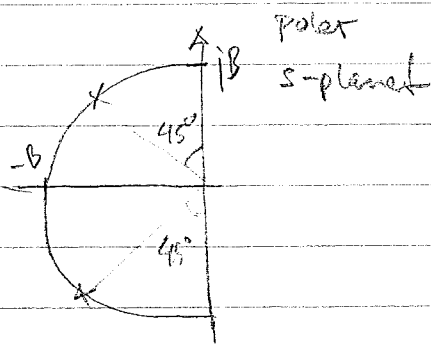 poles
s-planet
jB
45°
-B
45°